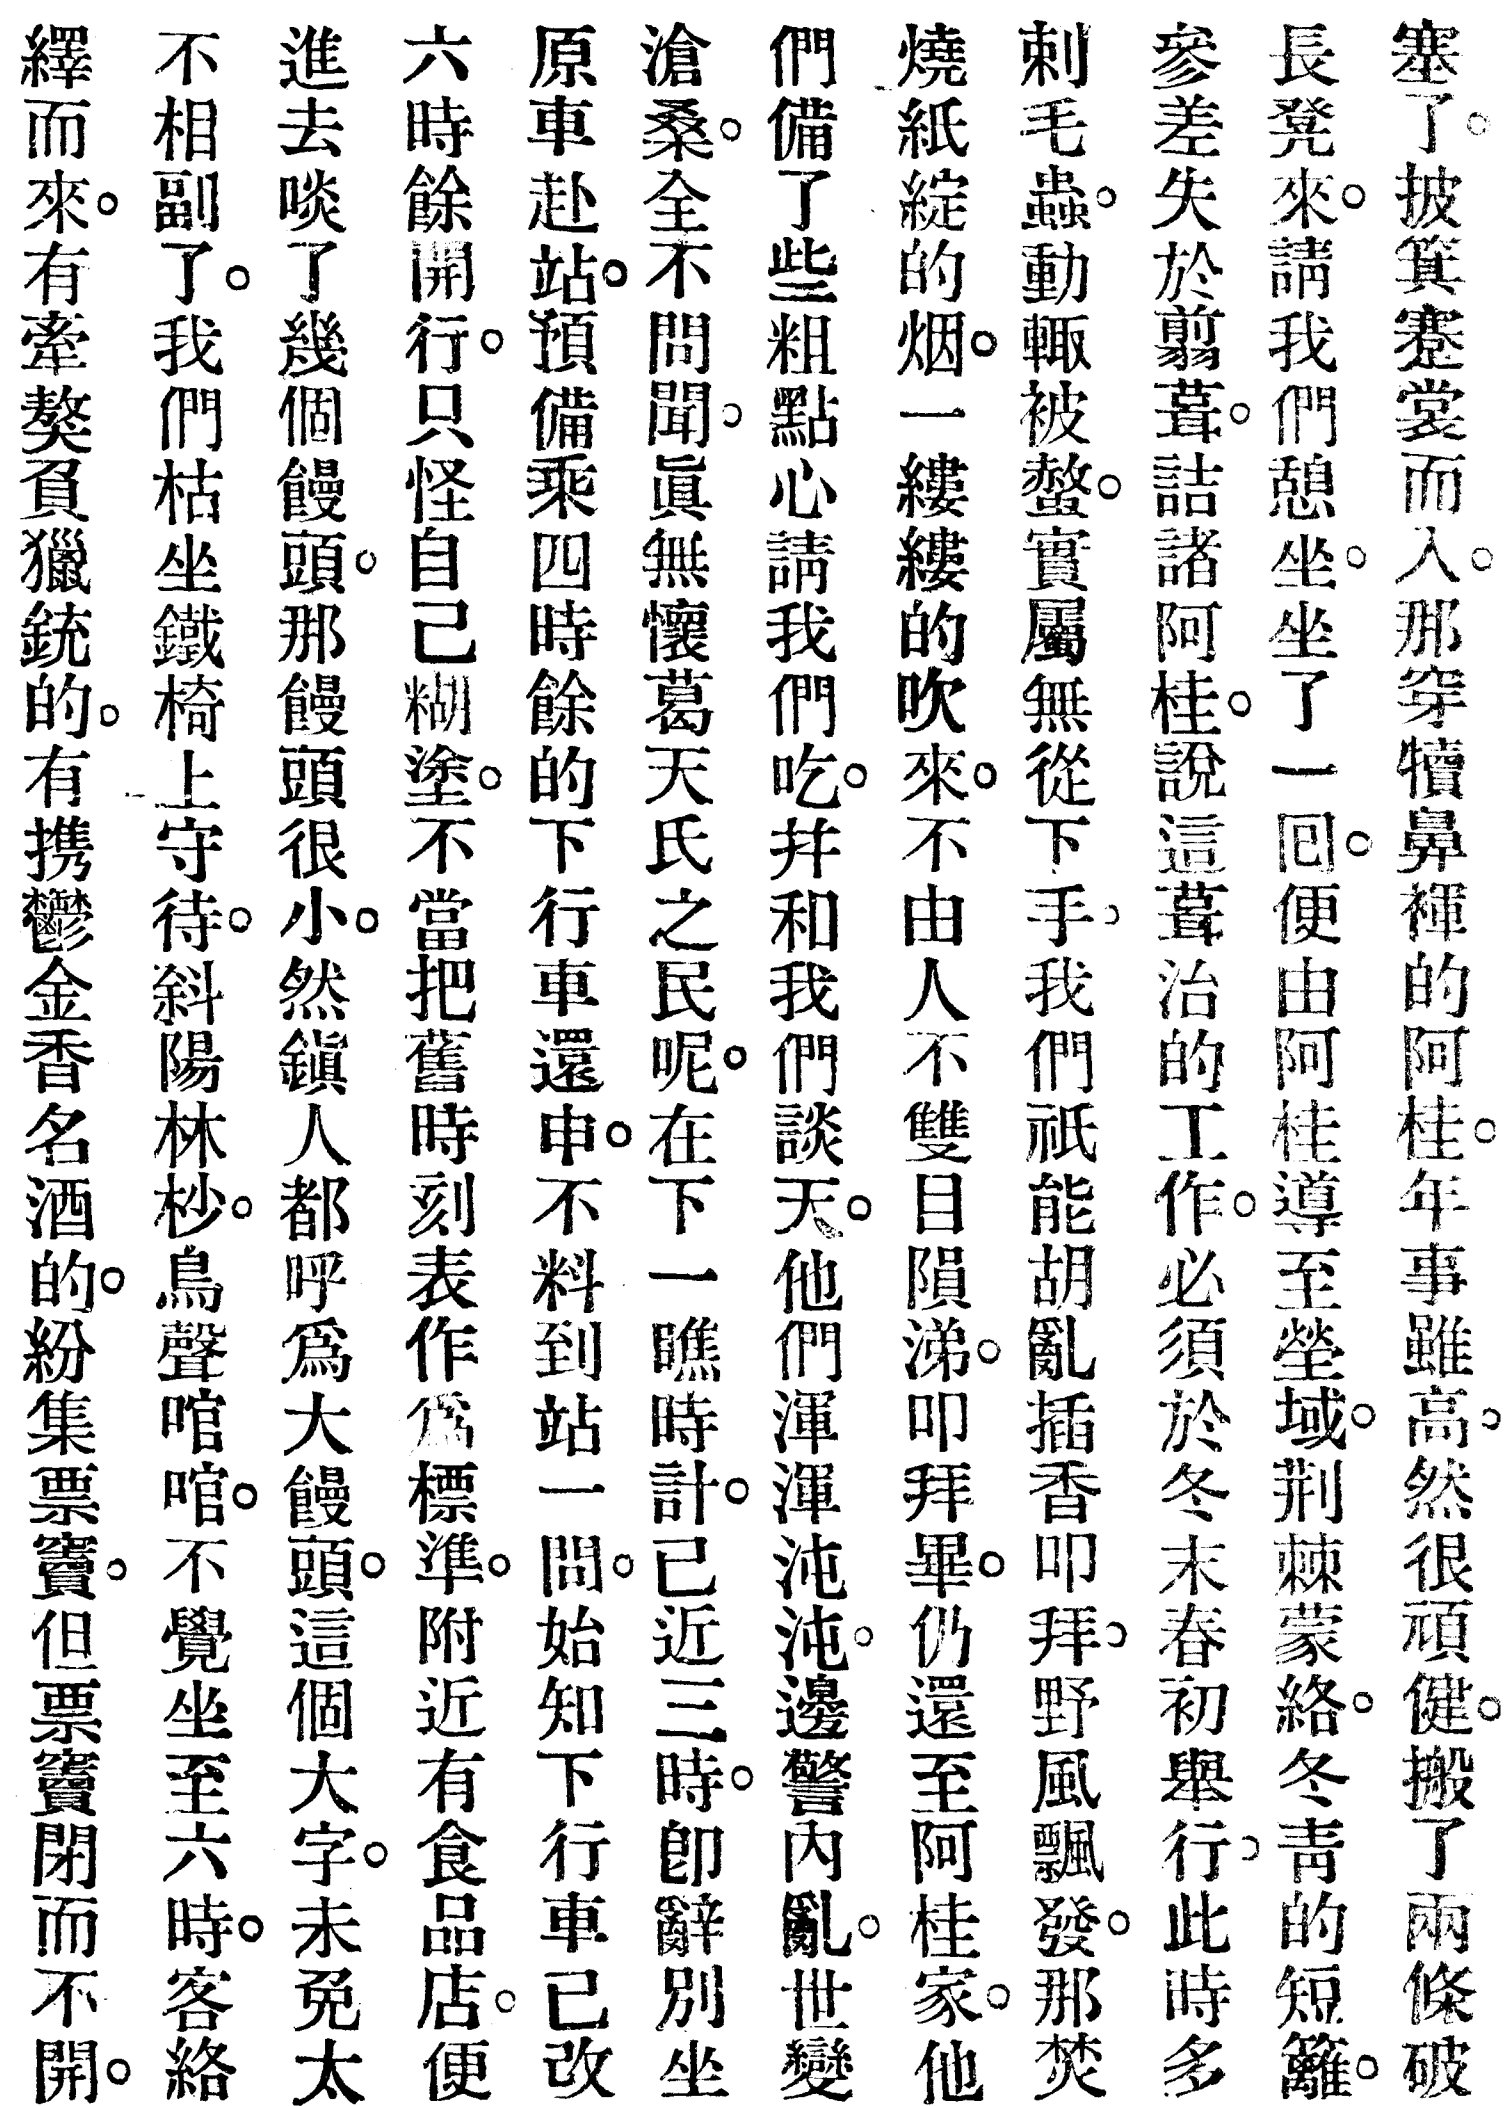 塞了。披箕蹇裳而入。那穿犢鼻褌的阿桂。年事雖高。然很頑健。搬了兩條破
長凳來。請我們憩坐。坐了一回。便由阿桂導至塋域。荆棘蒙絡。冬靑的短籬。
參差失於翦葺。詰諸阿桂。說這葺治的工作。必須於冬末春初舉行。此時多
刺毛蟲。動輙被螫。實屬無從下手。我們祇能胡亂插香叩拜。野風飄發。那焚
燒紙綻的烟。一縷縷的吹來。不由人不雙目隕涕。叩拜畢。仍還至阿桂家。他
們備了些粗點心請我們吃。幷和我們談天。他們渾渾沌沌。邊警內亂。世變
滄桑。全不問聞。眞無懷葛天氏之民呢。在下一瞧時計。已近三時。卽辭別坐
原車赴站。預備乘四時餘的下行車還申。不料到站一問。始知下行車已改
六時餘開行。只怪自己糊塗。不當把舊時刻表作爲標準。附近有食品店。便
進去啖了幾個饅頭。那饅頭很小。然鎭人都呼爲大饅頭。這個大字。未免太
不相副了。我們枯坐鐵椅上守待。斜陽林杪。鳥聲啼啼。不覺坐至六時。客絡
繹而來。有牽獒負獵銃的。有携鬱金香名酒的。紛集票竇。但票竇閉而不開。